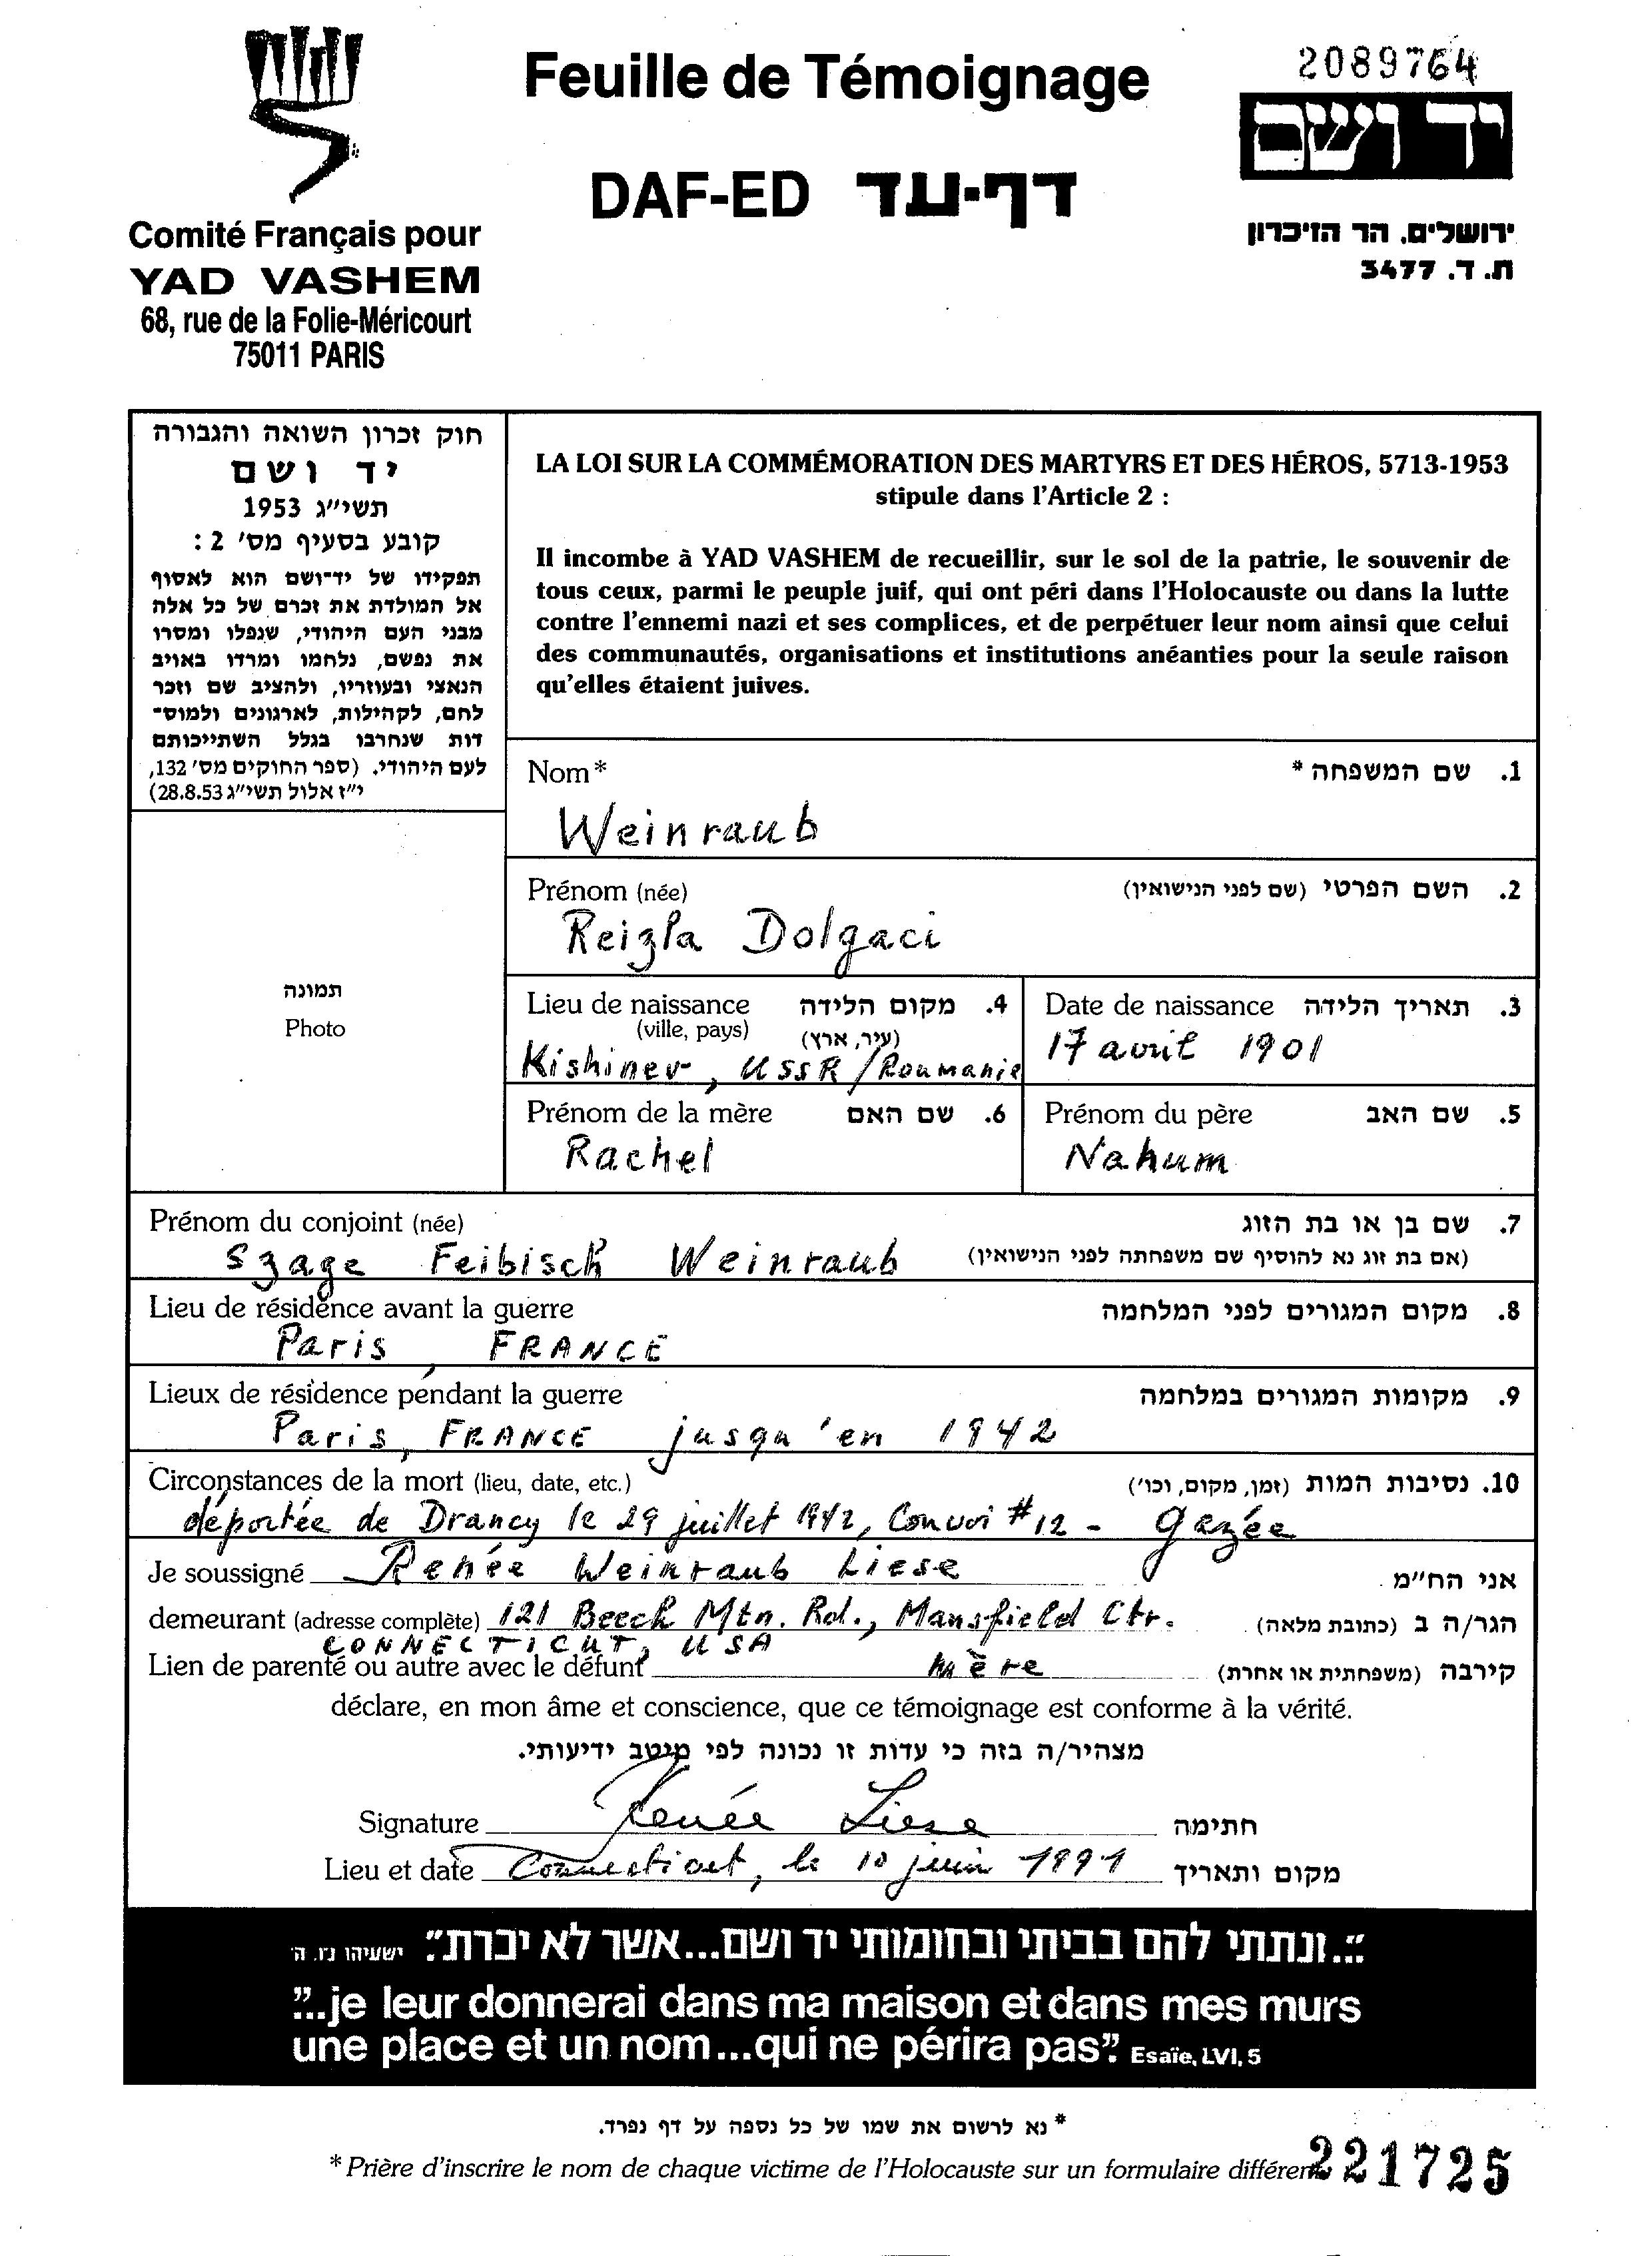 Feuille de Témoignage
2089764
יד ושם
DAF-ED דף-עד
Comité Français pour
YAD VASHEM
68, rue de la Folie-Méricourt
75011 PARIS
ירושלים. הר הזיכרון
ת. ד. 3477
חוק זכרון השואה והגבורה
יד ושם
תשי״ג 1953
קובע בסעיף מס׳ 2 :
תפקידו של יד־ושם הוא לאסוף
אל המולדת את זכרם של כל אלה
מבני העם היהודי, שנפלו ומסרו
את נפשם, נלחמו ומרדו באויב
הנאצי ובעוזריו, ולהציב שם וזכר
להם, לקהילות, לארגונים ולמוס־
דות שנחרבו בגלל השתייכותם
לעם היהודי. (ספר החוקים מס׳ 132,
י״ז אלול תשי״ג 28.8.53)
LA LOI SUR LA COMMÉMORATION DES MARTYRS ET DES HÉROS, 5713-1953
stipule dans l'Article 2 :
Il incombe à YAD VASHEM de recueillir, sur le sol de la patrie, le souvenir de
tous ceux, parmi le peuple juif, qui ont péri dans l'Holocauste ou dans la lutte
contre l'ennemi nazi et ses complices, et de perpétuer leur nom ainsi que celui
des communautés, organisations et institutions anéanties pour la seule raison
qu'elles étaient juives.
Nom* 1. שם המשפחה *
Weinraub
Prénom (née) 2. השם הפרטי (שם לפני הנישואין)
Reizla Dolgaci
תמונה
Photo
Lieu de naissance 4. מקום הלידה
(ville, pays) (עיר, ארץ)
Kishinev, USSR/Roumanie
Date de naissance 3. תאריך הלידה
17 avril 1901
Prénom de la mère 6. שם האם
Rachel
Prénom du père 5. שם האב
Nahum
Prénom du conjoint (née) 7. שם בן או בת הזוג
(אם בת זוג נא להוסיף שם משפחתה לפני הנישואין)
Szage Feibisch Weinraub
Lieu de résidence avant la guerre 8. מקום המגורים לפני המלחמה
Paris, FRANCE
Lieux de résidence pendant la guerre 9. מקומות המגורים במלחמה
Paris, FRANCE jusqu'en 1942
Circonstances de la mort (lieu, date, etc.) 10. נסיבות המות (זמן, מקום, וכו׳)
déportée de Drancy le 29 juillet 1942, Convoi #12 - gazée
Je soussigné Renée Weinraub Liese אני הח״מ
demeurant (adresse complète) 121 Beech Mtn. Rd., Mansfield Ctr. הגר/ה ב (כתובת מלאה)
CONNECTICUT, USA
Lien de parenté ou autre avec le défunt mère קירבה (משפחתית או אחרת)
déclare, en mon âme et conscience, que ce témoignage est conforme à la vérité.
מצהיר/ה בזה כי עדות זו נכונה לפי מיטב ידיעותי.
Signature Renée Liese חתימה
Lieu et date Connecticut, le 10 juin 1991 מקום ותאריך
״...ונתתי להם בביתי ובחומותי יד ושם...אשר לא יכרת״. ישעיהו נ״ו. ה׳
"...je leur donnerai dans ma maison et dans mes murs
une place et un nom...qui ne périra pas". Esaïe, LVI, 5
* נא לרשום את שמו של כל נספה על דף נפרד.
* Prière d'inscrire le nom de chaque victime de l'Holocauste sur un formulaire différent
221725